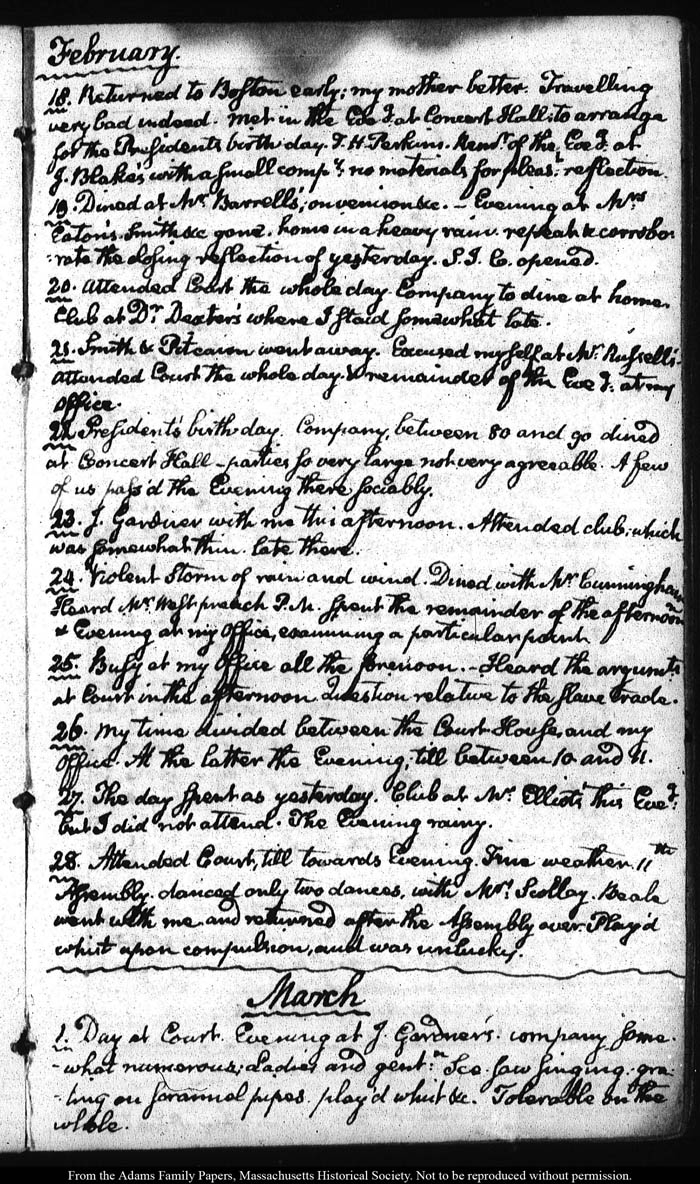 February.
18. Returned to Boston early; my mother better. Travelling
very bad indeed. met in the Eve.g at Concert Hall; to arrange
for the Presidents birth day. T. H. Perkins. Remr. of the Eve.g at
J. Blake's with a small compy. no materials for pleast. reflection.
19. Dined at Mr. Barrell's; on venison &c. — Evening at Mrs
Eaton's. Smith &c gone. home in a heavy rain. repeat & corrobo-
-rate the closing reflection of yesterday. S. J. C. opened.
20. Attended Court the whole day. Company to dine at home.
Club at Dr. Dexter's where I staid somewhat late.
21. Smith & Pitcairn went away. Excused myself at Mr. Russell's-
attended Court the whole day & remainder of the Eve.g: at my
Office.
22. President's birth day. Company, between 80 and 90 dined
at Concert Hall — parties so very large not very agreeable. A few
of us pass'd the Evening there sociably.
23. J. Gardner with me this afternoon. Attended club; which
was somewhat thin. late there.
24. Violent Storm of rain and wind. Dined with Mr. Cunningham
Heard Mr. West preach P.M. Spent the remainder of the afternoon
& Evening at my Office, examining a particular point.
25. Busy at my Office all the forenoon. — Heard the argumts
at Court in the afternoon. Question relative to the slave trade.
26. my time divided between the Court House, and my
Office. At the latter the Evening, till between 10 and 11.
27. The day spent as yesterday. Club at Mr. Elliot's this Eve.g:
but I did not attend. The Evening rainy.
28. Attended Court, till towards Evening. Fine weather. 11th
Assembly. danced only two dances, with Mrs. Scollay. Beale
went with me and returned after the Assembly over. Play'd
whist upon compulsion, and was unlucky.
March
1. Day at Court. Evening at J. Gardner's. company some-
-what numerous; Ladies and gentn. Sce. saw singing. gra-
-ting on scrannel pipes. play'd whist &c. Tolerable on the
whole.
From the Adams Family Papers, Massachusetts Historical Society. Not to be reproduced without permission.